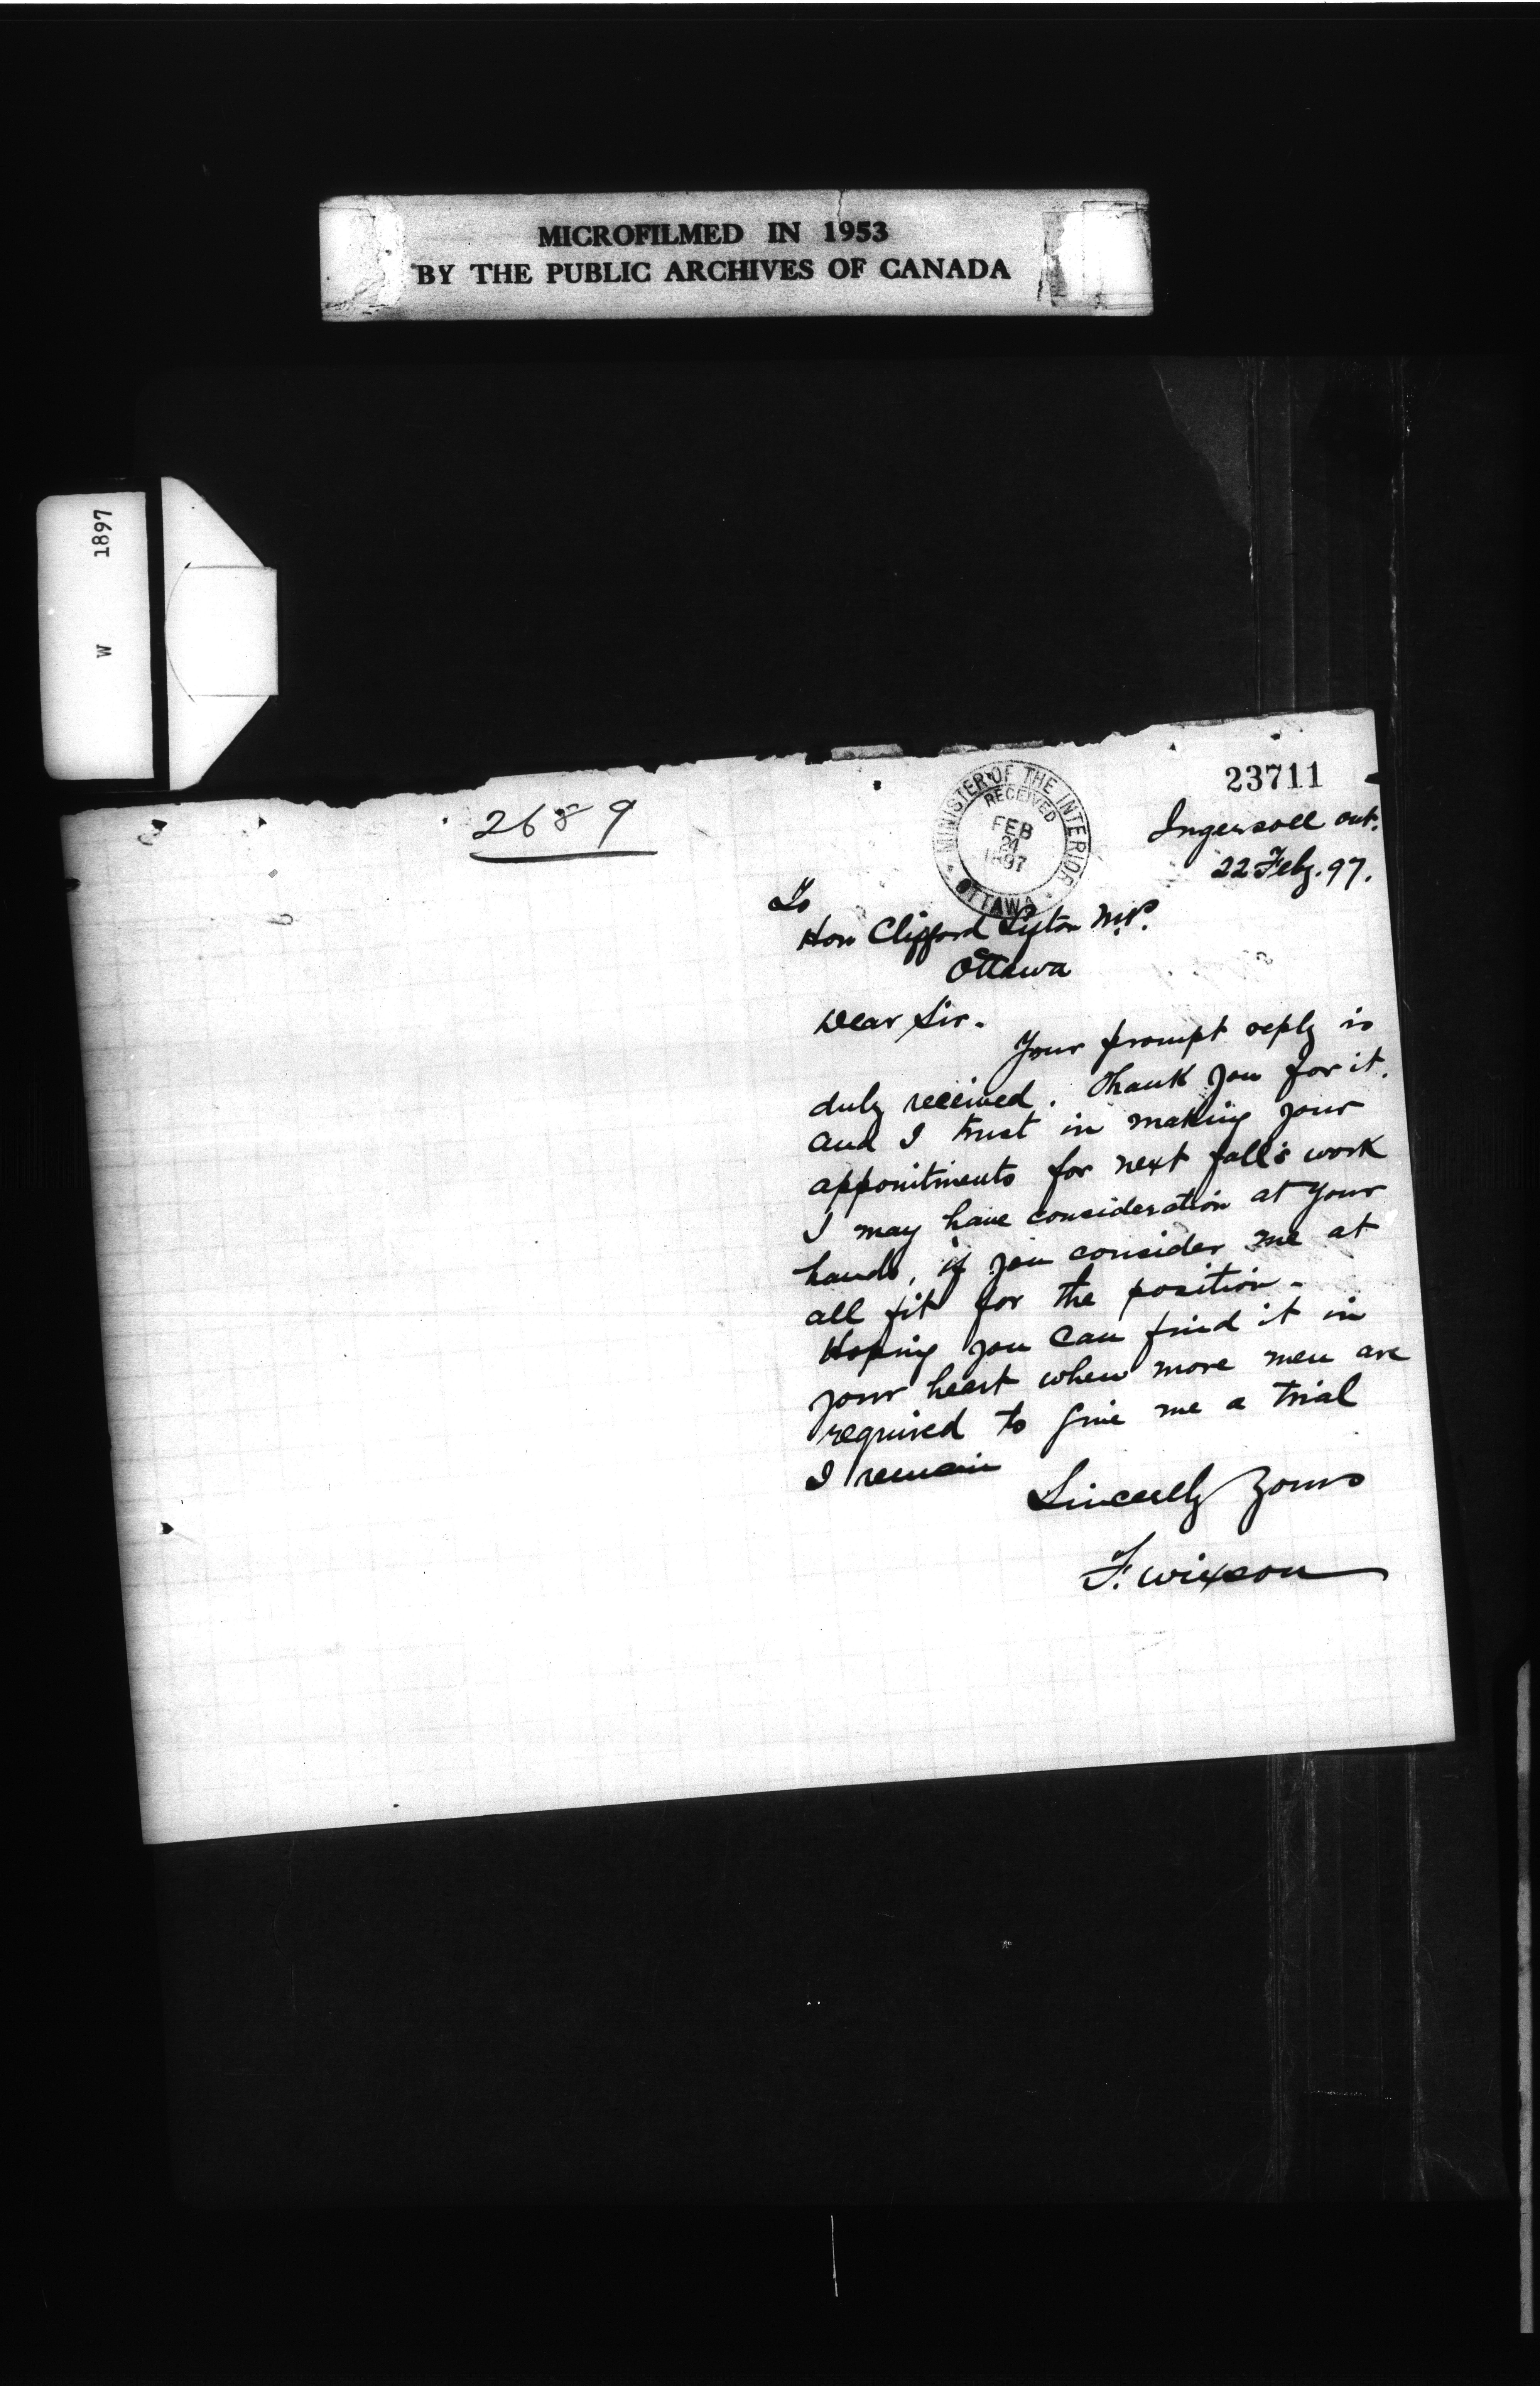 MICROFILMED IN 1953
BY THE PUBLIC ARCHIVES OF CANADA
W 1897
2689
MINISTER OF THE INTERIOR
RECEIVED
FEB
24
1897
OTTAWA
23711
Ingersoll Ont.
22 Feby. 97.
To
Hon Clifford Sifton M.P.
Ottawa
Dear Sir.
Your prompt reply is
duly received. Thank you for it.
and I trust in making your
appointments for next fall's work
I may have consideration at your
hands, if you consider me at
all fit for the position -
Hoping you can find it in
your heart when more men are
required to give me a trial
I remain
Sincerely Yours
F. Wixson